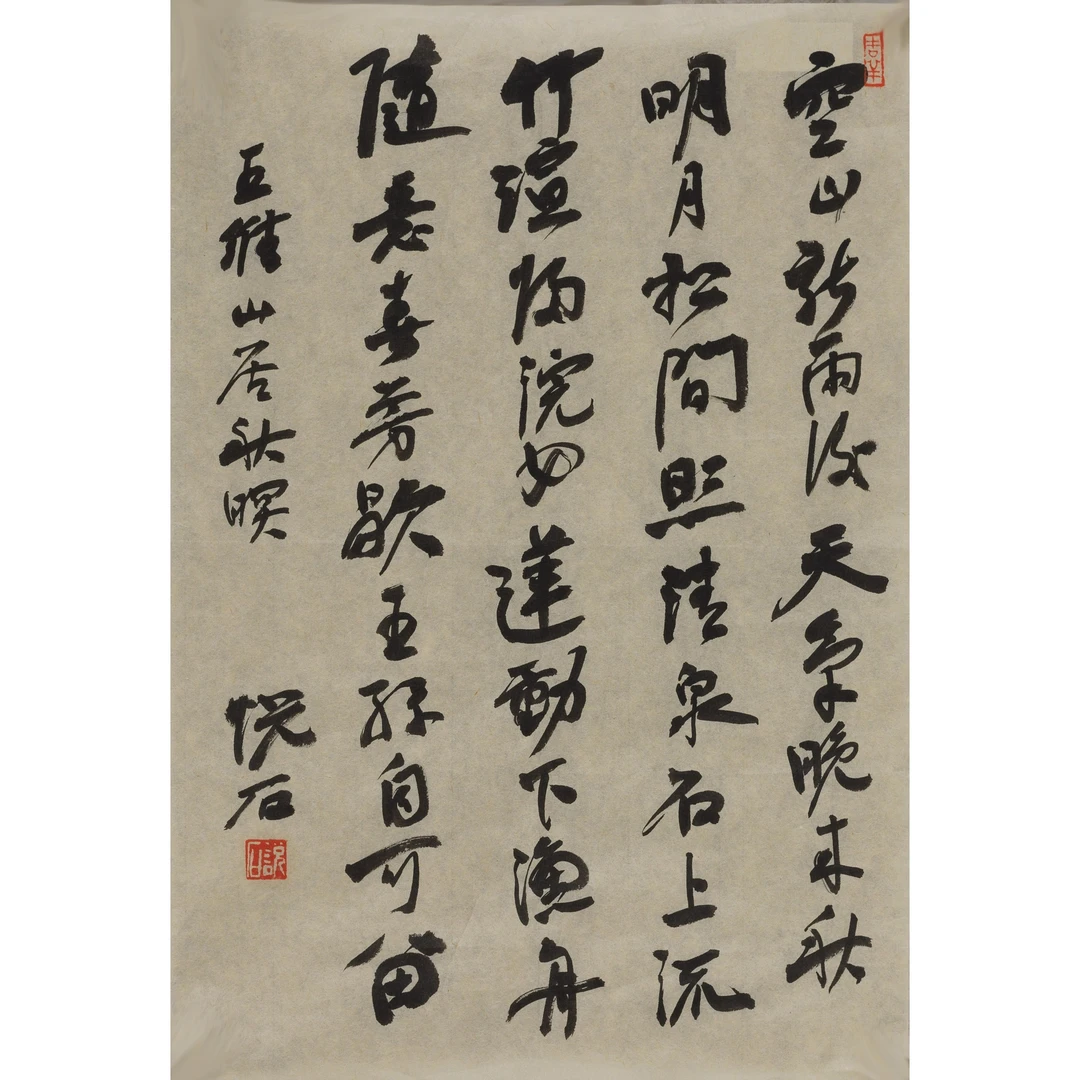 空山新雨後天氣晚来秋
明月松間照清泉石上流
竹喧歸浣女蓮動下漁舟
隨意春芳歇王孫自可留
王維山居秋暝
悦石
吉羊